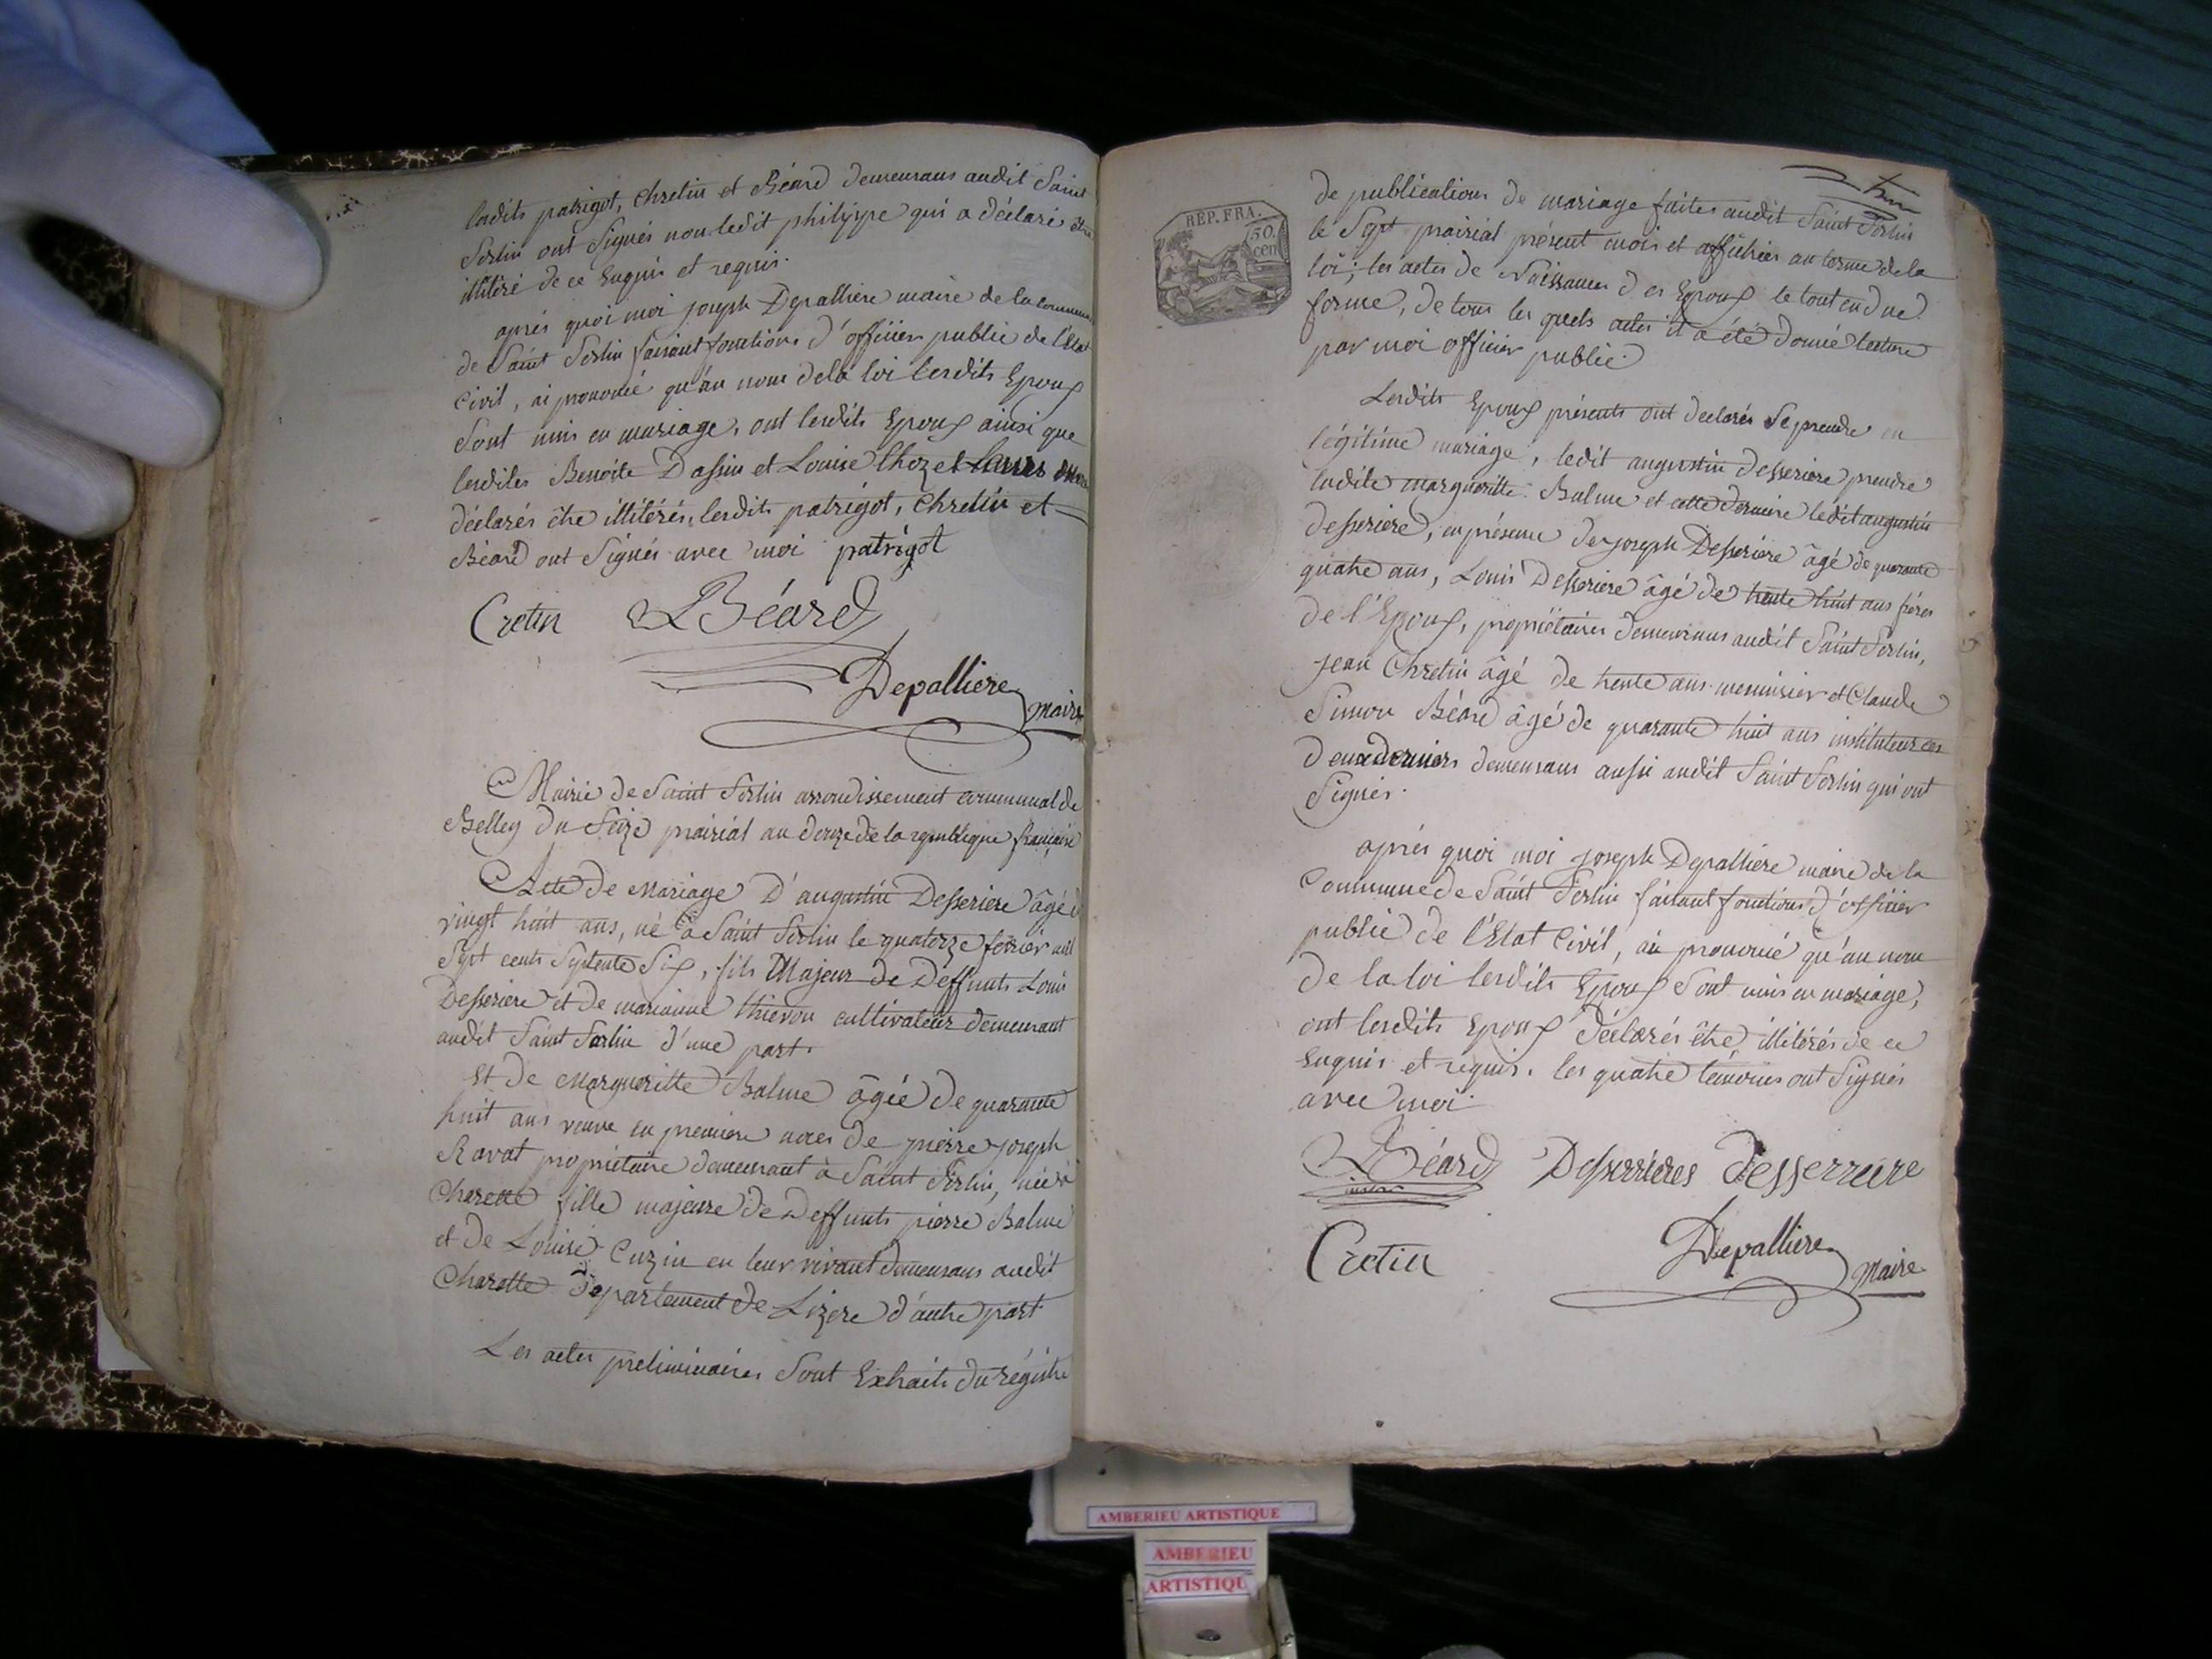 lesdits patrigot, chretin et Béard demeurans audit Saint
Sorlin ont Signés non ledit philippe qui a déclaré être
illitéré de ce Enquis et requis.
après quoi moi joseph Depalliere maire de la commune
de Saint Sorlin faisant fonctions d'officier public de l'état
Civil, ai prononcé qu'au nom de la loi lesdits Epoux
Sont unis en mariage, ont lesdits Epoux ainsi que
lesdites Benoite Dassin et Louise
déclarés être illitérés, lesdits patrigot, Chretin et
Béard ont Signés avec moi patrigot
Cretin Béard
Depalliere maire
Mairie de Saint Sorlin arrondissement communal de
Belley du Seize prairial an douze de la republique française
Acte de Mariage D'augustin Desseriere âgé de
vingt huit ans, né à Saint Sorlin le quatorze fevrier mil
Sept cents Septente Six, fils Majeur de Deffunts Louis
Desseriere et de marianne thievon cultivateur demeurant
audit Saint Sorlin d'une part.
Et de Margueritte Balme âgée de quarante
huit ans veuve en premiere noces de pierre joseph
Ravat propriétaire demeurant à Saint Sorlin, née à
Charette fille majeure de Deffunts pierre Balme
et de Louise Cuzin en leur vivant demeurans audit
Charette Département de Lizere d'autre part
Les actes preliminaires Sont Extraits du régistre
de publications de mariage faites audit Saint Sorlin
le Sept prairial présent mois et affichées au terme de la
loi; les actes de Naissances des Epoux le tout en due
forme, de tous les quels actes il a été donné lecture
par moi officier public.
Lesdits Epoux présents ont declarés Se prendre en
légitime mariage, ledit augustin desseriere prendre
ladite margueritte Balme et cette derniere ledit augustin
desseriere, en présence de joseph Desseriere âgé de quarante
quatre ans, Louis Desseriere âgé de trente huit ans freres
de l'Epoux, propriétaires demeurans audit Saint Sorlin,
jean Chretin âgé de trente ans menuisier et Claude
Simon Béard âgé de quarante huit ans instituteur ces
deux derniers demeurans aussi audit Saint Sorlin qui ont
Signés.
après quoi moi joseph Depalliere maire de la
Commune de Saint Sorlin faisant fonctions d'officier
public de l'Etat Civil, ai prononcé qu'au nom
de la loi lesdits Epoux Sont unis en mariage,
ont lesdits Epoux déclarés être illitérés de ce
Enquis et requis. les quatre témoins ont Signés
avec moi.
Béard Desserrieres desserreire
Cretin Depalliere maire
REP. FRA.
50.
cen
AMBERIEU ARTISTIQUE
AMBERIEU
ARTISTIQU